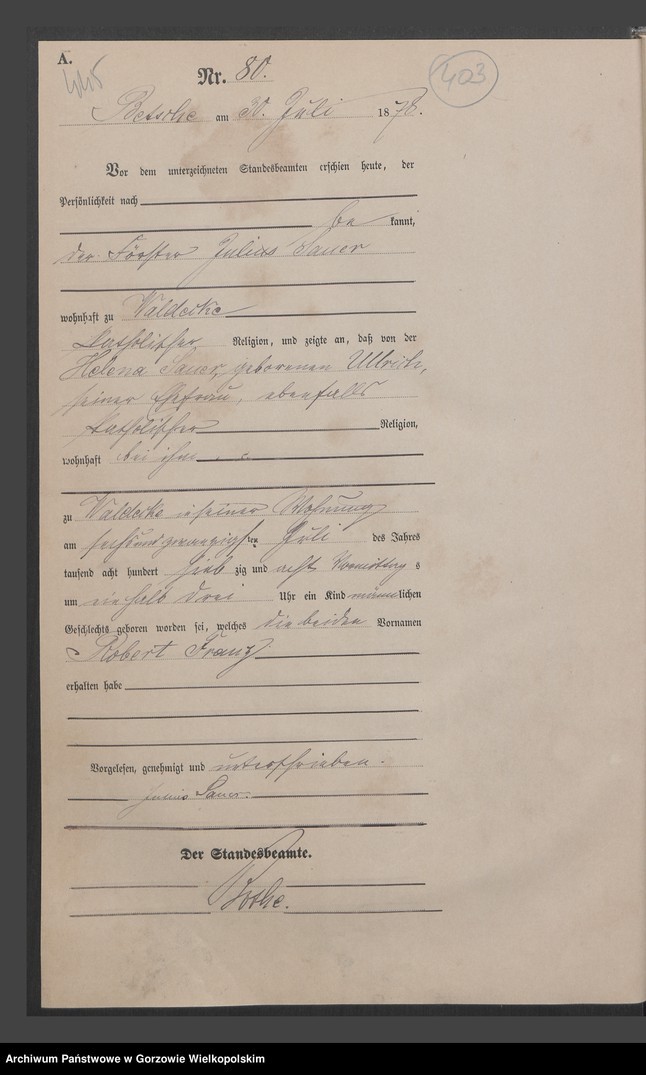 A.
445
Nr. 80.
403
Betsche am 30. Juli 1878.
Vor dem unterzeichneten Standesbeamten erschien heute, der
Persönlichkeit nach
be kannt,
der Förster Julius Sauer
wohnhaft zu Waldecke
katholischer Religion, und zeigte an, daß von der
Helena Sauer, geborenen Ullrich,
seiner Ehefrau, ebenfalls
katholischer Religion,
wohnhaft bei ihm
zu Waldecke in seiner Wohnung
am sechsundzwanzigsten Juli des Jahres
tausend acht hundert sieb zig und acht Vormittag s
um ein halb drei Uhr ein Kind männlichen
Geschlechts geboren worden sei, welches die beiden Vornamen
Robert Franz
erhalten habe
Vorgelesen, genehmigt und unterschrieben.
Julius Sauer.
Der Standesbeamte.
Archiwum Państwowe w Gorzowie Wielkopolskim